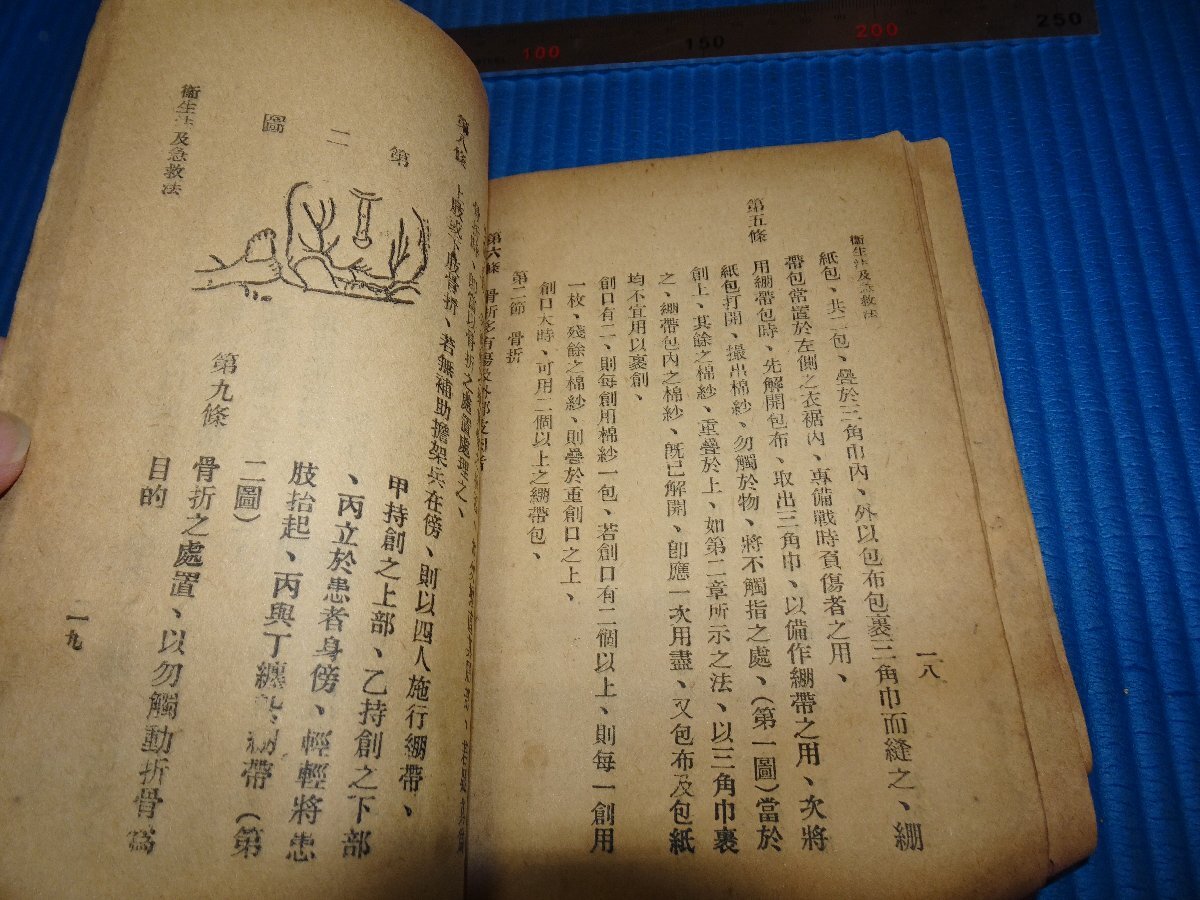 衛生法及急救法
一八
紙包、共二包、疊於三角巾內、外以包布包裹三角巾而縫之、綳
帶包常置於左側之衣裾內、專備戰時負傷者之用、
第五條 用綳帶包時、先解開包布、取出三角巾、以備作綳帶之用、次將
紙包打開、撮出棉紗、勿觸於物、將不觸指之處、(第一圖)當於
創上、其餘之棉紗、重疊於上、如第二章所示之法、以三角巾裹
之、綳帶包內之棉紗、旣已解開、卽應一次用盡、又包布及包紙
均不宜用以裹創、
創口有二、則每創用棉紗一包、若創口有二個以上、則每一創用
一枚、殘餘之棉紗、則疊於重創口之上、
創口大時、可用二個以上之綳帶包、
第二節 骨折
第六條 骨折多有傷及外部之
骨折之處置處理之、
第八條 上肢或下肢骨折、若無補助擔架兵在傍、則以四人施行綳帶、
甲持創之上部、乙持創之下部
、丙立於患者身傍、輕輕將患
肢抬起、丙與丁纏紮綳帶(第
二圖)
第九條 骨折之處置、以勿觸動折骨爲
目的
第二圖
衛生法及急救法
一九
100
150
200
250